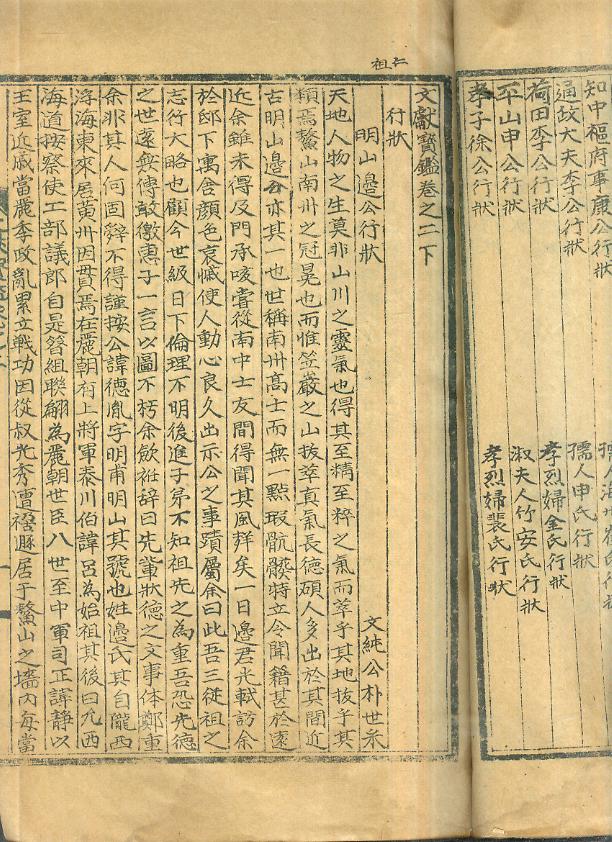 知中樞府事康公行狀
通政大夫李公行狀　孺人申氏行狀
荷田李公行狀　孝烈婦金氏行狀
平山申公行狀　淑夫人竹安氏行狀
孝子徐公行狀　孝烈婦裴氏行狀
仁
祖
文獻寶鑑卷之二下
行狀
明山邊公行狀　文純公朴世采
天地人物之生莫非山川之靈氣也得其至精至粹之氣而萃乎其地拔乎其
類焉鰲山南州之冠冕也而惟笠巖之山拔萃眞氣長德碩人多出於其間近
古明山邊公亦其一也世稱南州高士而無一點瑕骯髒特立令聞籍甚於遠
近余雖未得及門承咳嘗從南中士友間得聞其風群矣一日邊君光軾訪余
於邸下寓舍顔色哀慽使人動心良久出示公之事蹟屬余曰此吾三從祖之
志行大略也顧今世級日下倫理不明後進子弟不知祖先之為重吾恐先德
之世遠無傳敢徼惠子一言以圖不朽余飮袵辭曰先輩狀德之文事体鄭重
余非其人何固辤不得謹按公諱德胤字明甫明山其號也姓邊氏其自隴西
浮海東來居黃州因貫焉在麗朝有上將軍泰川伯諱呂為始祖其後曰允西
海道按察使工部議郎自是簪組聯翩為麗朝世臣八世至中軍司正諱靜以
王室近戚當麗季政亂累立戰功因從叔光秀遭禍遯居于鰲山之墻內海當